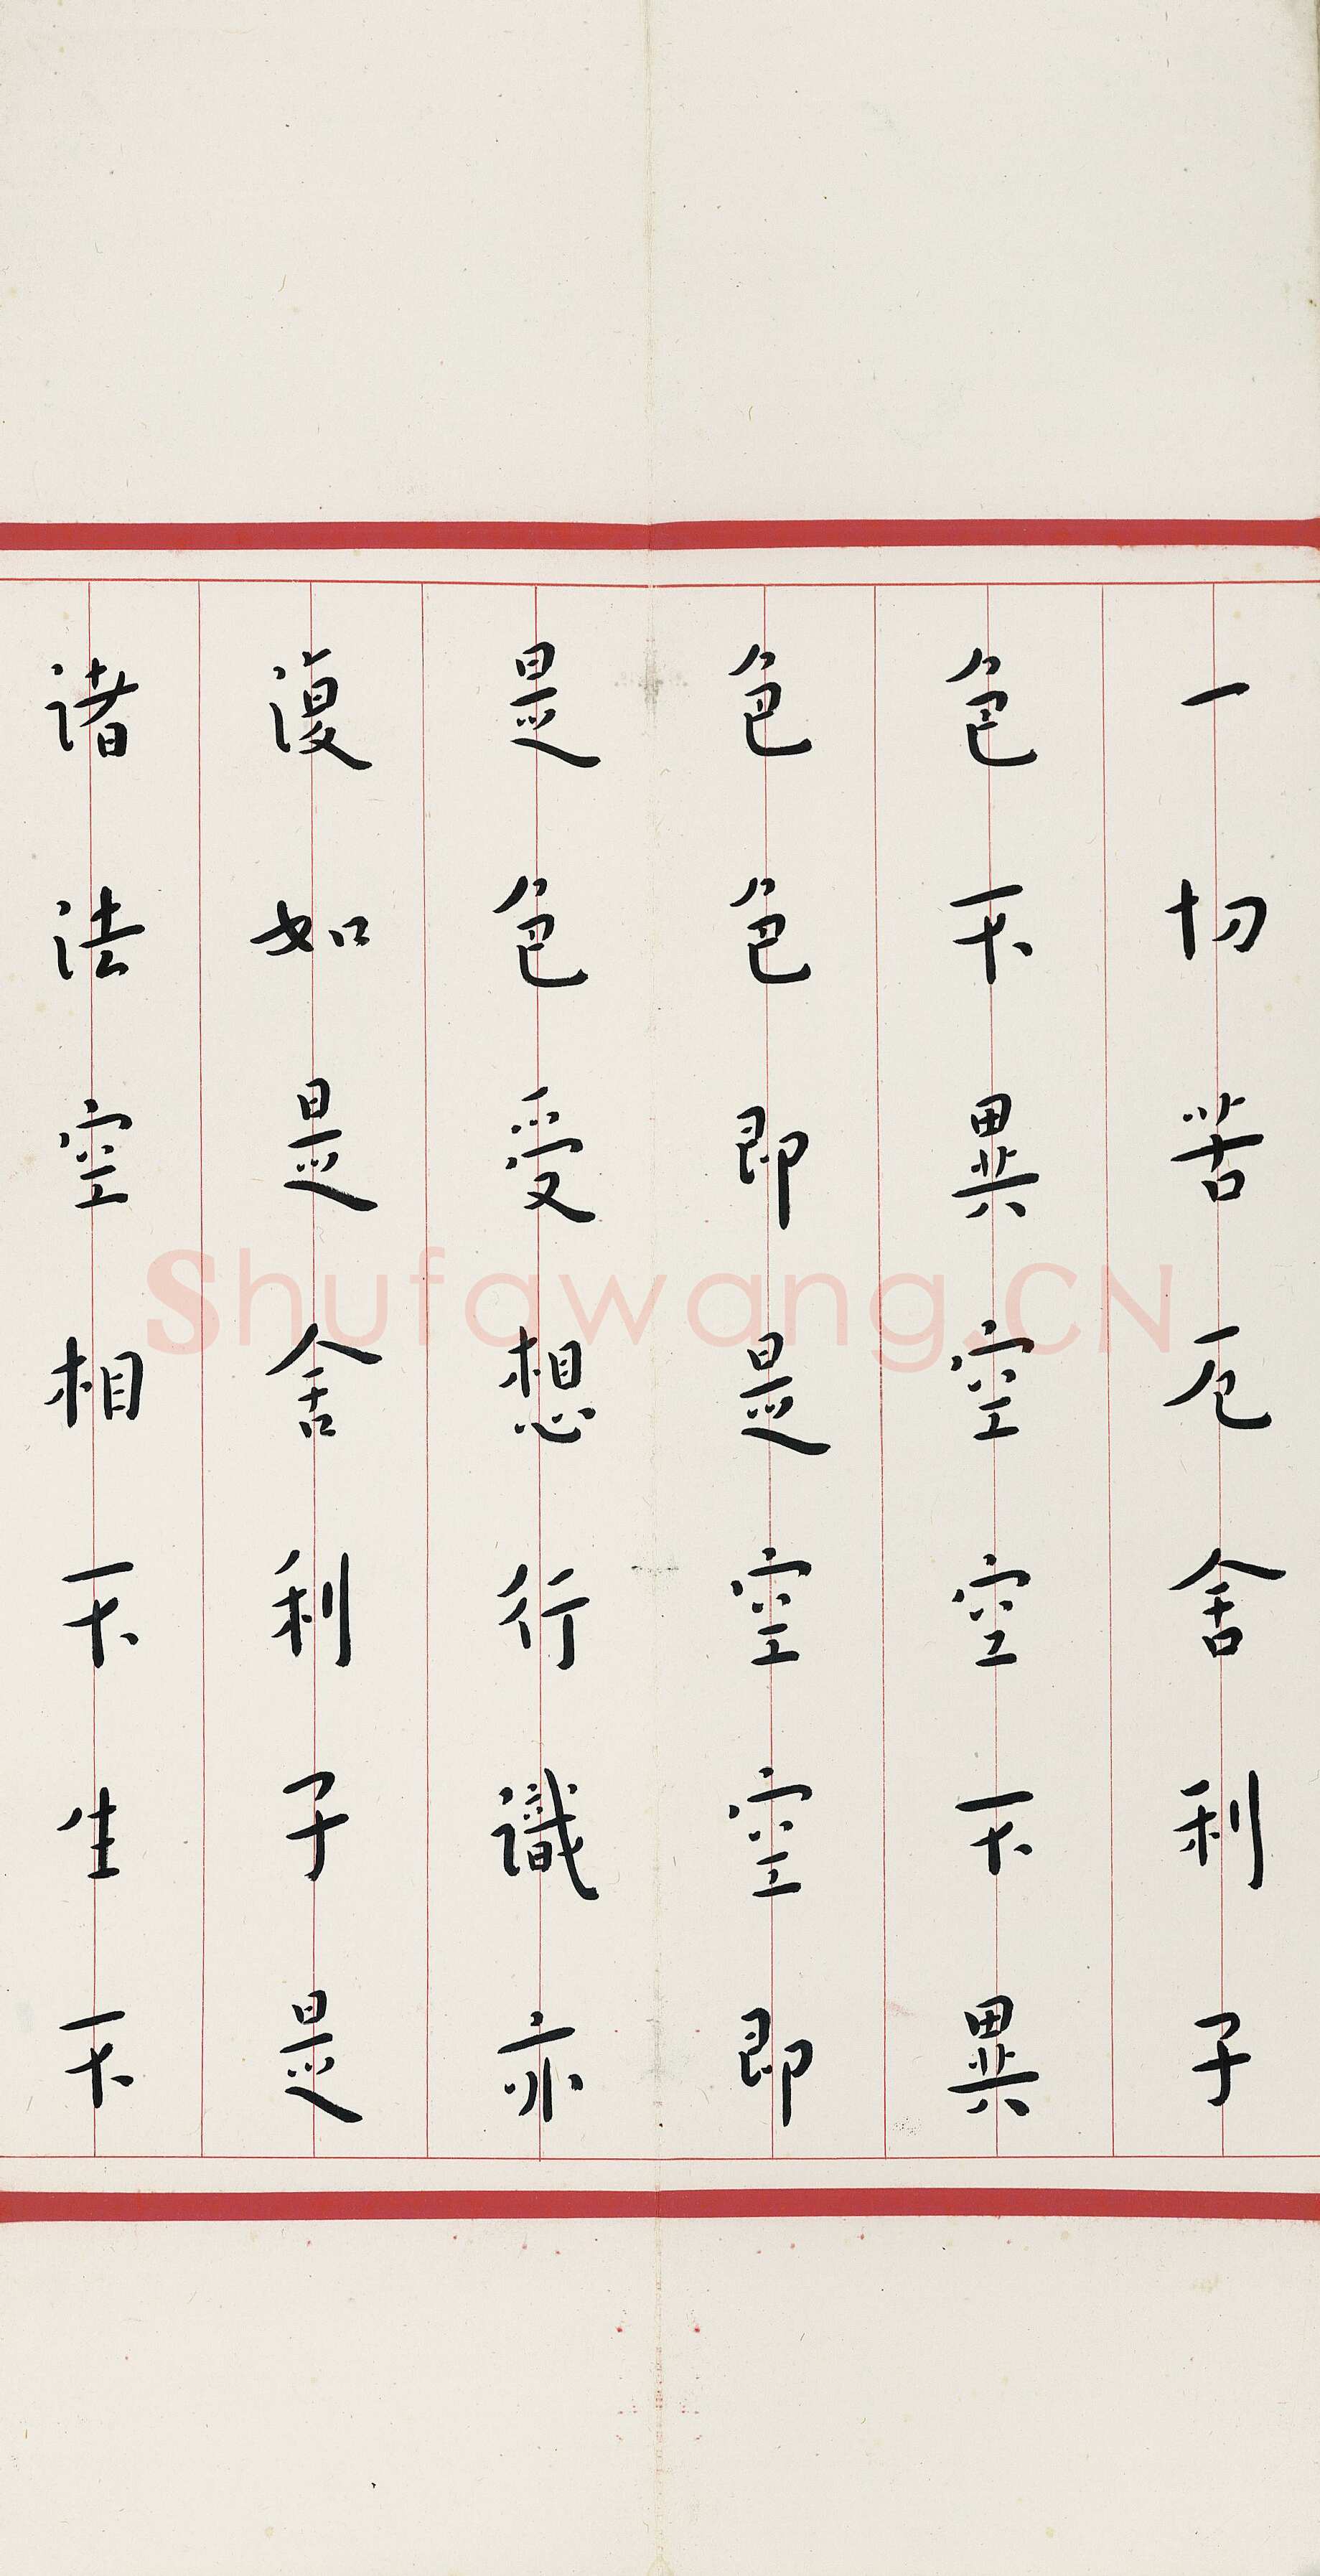 一切苦厄舍利子
色不異空空不異
色色即是空空即
是色受想行識亦
復如是舍利子是
諸法空相不生不
Shufawang.CN